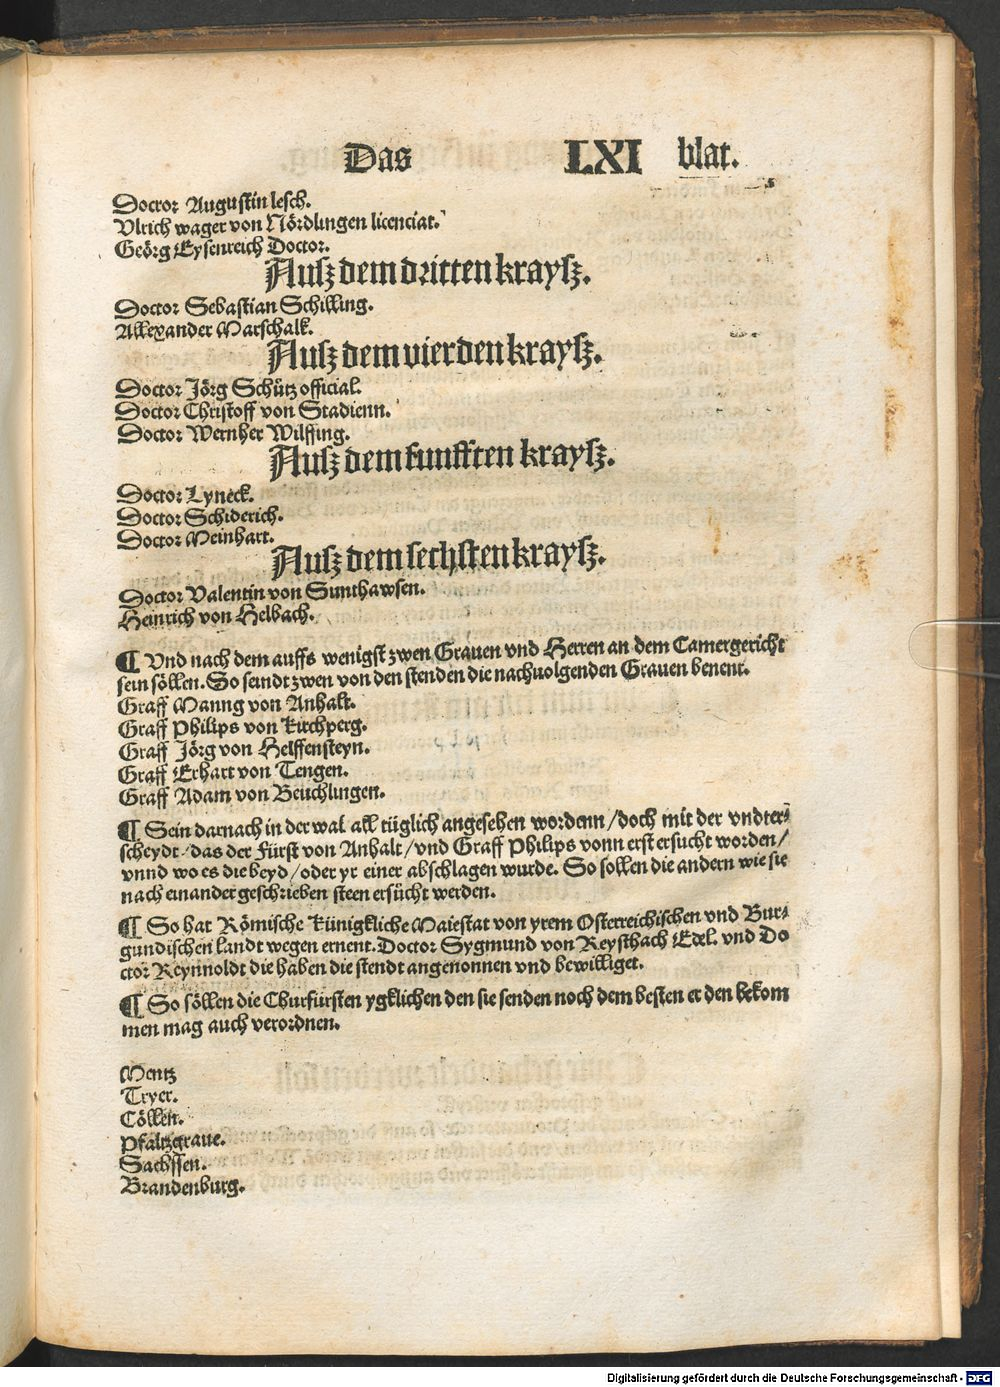 Das LXI blat.
Docror Augustin lesch.
Vlrich wager von Nördlingen licenciat.
Geörg Eysenreich Doctor.
Ausz dem dritten kraysz.
Doctor Sebastian Schilling.
Allexander Marschalk.
Ausz dem vierden kraysz.
Doctor Jörg Schütz official.
Doctor Christoff von Stadienn.
Doctor Wernher Wilffing.
Ausz dem funfften kraysz.
Doctor Lyneck.
Doctor Schiderich.
Doctor Meinhart.
Ausz dem sechsten kraysz.
Doctor Valentin von Sunthawsen.
Heinrich von Helbach.
¶ Vnd nach dem auffs wenigst zwen Grauen vnd Herren an dem Camergericht
sein söllen. So seindt zwen von den stenden die nachuolgenden Grauen benent.
Graff Manng von Anhalt.
Graff Philips von Kirchperg.
Graff Jörg von Helffensteyn.
Graff Erhart von Tengen.
Graff Adam von Beuchlingen.
¶ Sein darnach in der wal all tüglich angesehen wordenn / doch mit der vndter⸗
scheydt / das der Fürst von Anhalt / vnd Graff Philips vonn erst ersucht worden /
vnnd wo es die beyd / oder yr einer abschlagen wurde. So sollen die andern wie sie
nach einander geschrieben steen ersücht werden.
¶ So hat Römische Künigkliche Maiestat von yrem Osterreichischen vnd Bur⸗
gundischen landt wegen ernent. Doctor Sygmund von Reysthach Edel. vnd Do
ctor Reynnoldt die haben die stendt angenonnen vnd bewilliget.
¶ So söllen die Churfürsten ygklichen den sie senden noch dem besten er den bekom
men mag auch verordnen.
Mentz
Tryer.
Cöllen.
Pfaltzgraue.
Sachssen.
Brandenburg.
Digitalisierung gefördert durch die Deutsche Forschungsgemeinschaft - DFG